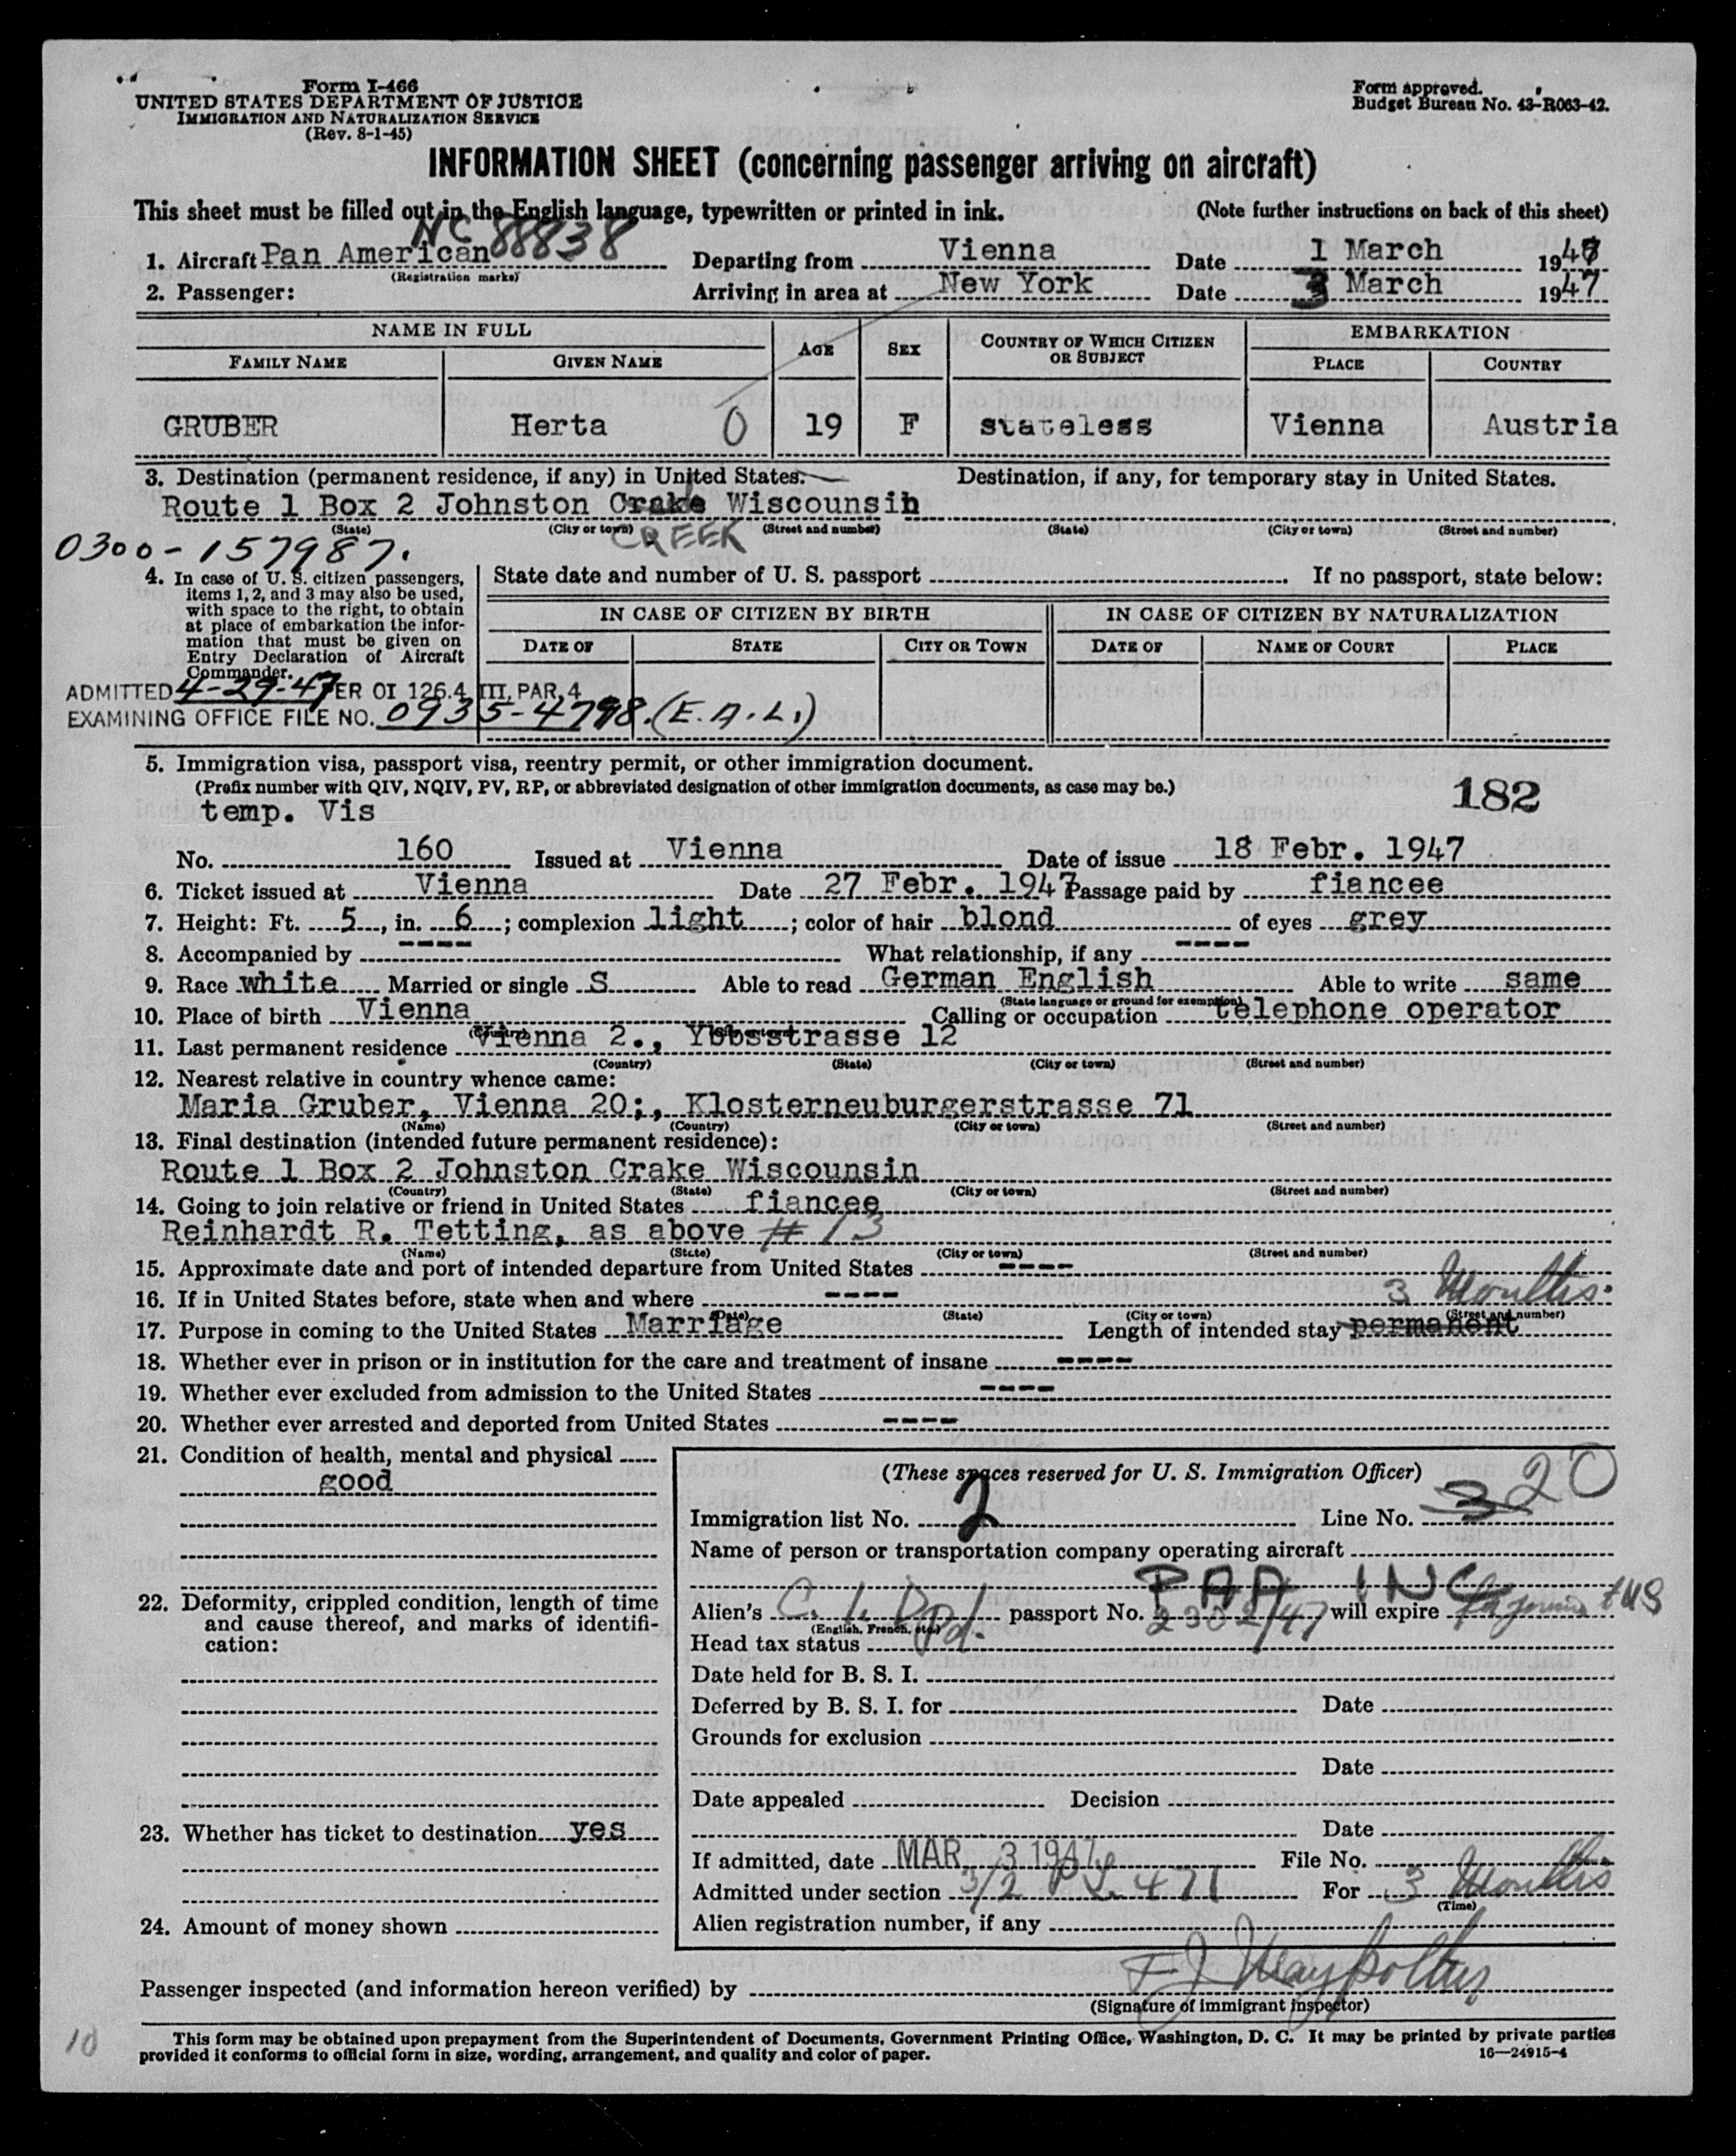 Form I-466
UNITED STATES DEPARTMENT OF JUSTICE
IMMIGRATION AND NATURALIZATION SERVICE
(Rev. 8-1-45)
Form approved.
Budget Bureau No. 43-R063-42.
INFORMATION SHEET (concerning passenger arriving on aircraft)
This sheet must be filled out in the English language, typewritten or printed in ink. (Note further instructions on back of this sheet)
NC 88838
1. Aircraft Pan American Departing from Vienna Date 1 March 1947
(Registration marks)
2. Passenger: Arriving in area at New York Date 3 March 1947
NAME IN FULL AGE SEX COUNTRY OF WHICH CITIZEN OR SUBJECT EMBARKATION
FAMILY NAME GIVEN NAME PLACE COUNTRY
GRUBER Herta 0 19 F stateless Vienna Austria
3. Destination (permanent residence, if any) in United States. Destination, if any, for temporary stay in United States.
Route 1 Box 2 Johnston Crake Wiscounsin
(State) (City or town) (Street and number) (State) (City or town) (Street and number)
CREEK
0300-157987.
4. In case of U. S. citizen passengers, items 1, 2, and 3 may also be used, with space to the right, to obtain at place of embarkation the information that must be given on Entry Declaration of Aircraft Commander.
State date and number of U. S. passport If no passport, state below:
IN CASE OF CITIZEN BY BIRTH IN CASE OF CITIZEN BY NATURALIZATION
DATE OF STATE CITY OR TOWN DATE OF NAME OF COURT PLACE
ADMITTED 4-29-47 PER OI 126.4 III, PAR. 4
EXAMINING OFFICE FILE NO. 0935-4798. (E.A.L.)
5. Immigration visa, passport visa, reentry permit, or other immigration document.
(Prefix number with QIV, NQIV, PV, RP, or abbreviated designation of other immigration documents, as case may be.)
182
temp. Vis
No. 160 Issued at Vienna Date of issue 18 Febr. 1947
6. Ticket issued at Vienna Date 27 Febr. 1947 Passage paid by fiancee
7. Height: Ft. 5, in. 6; complexion light; color of hair blond of eyes grey
8. Accompanied by ---- What relationship, if any ----
9. Race white Married or single S Able to read German English Able to write same
(State language or ground for exemption)
10. Place of birth Vienna Calling or occupation telephone operator
(Country) (City or town)
11. Last permanent residence Vienna 2., Ybbsstrasse 12
(Country) (State) (City or town) (Street and number)
12. Nearest relative in country whence came:
Maria Gruber, Vienna 20;, Klosterneuburgerstrasse 71
(Name) (Country) (City or town) (Street and number)
13. Final destination (intended future permanent residence):
Route 1 Box 2 Johnston Crake Wiscounsin
(Country) (State) (City or town) (Street and number)
14. Going to join relative or friend in United States fiancee
Reinhardt R. Tetting, as above # 13
(Name) (State) (City or town) (Street and number)
15. Approximate date and port of intended departure from United States ----
16. If in United States before, state when and where ---- 3 Months.
(Date) (State) (City or town) (Street and number)
17. Purpose in coming to the United States Marriage Length of intended stay permanent
18. Whether ever in prison or in institution for the care and treatment of insane ----
19. Whether ever excluded from admission to the United States ----
20. Whether ever arrested and deported from United States ----
21. Condition of health, mental and physical
good
22. Deformity, crippled condition, length of time and cause thereof, and marks of identification:
23. Whether has ticket to destination yes
24. Amount of money shown
(These spaces reserved for U. S. Immigration Officer)
Immigration list No. 2 Line No. 3 20
Name of person or transportation company operating aircraft
PAA INC
Alien's C. I. passport No. 2302/47 will expire
(English, French, etc.)
Head tax status
Date held for B. S. I.
Deferred by B. S. I. for Date
Grounds for exclusion
Date
Date appealed Decision
Date
If admitted, date MAR 3 1947 File No.
Admitted under section 3/2 PL 471 For 3 Months
(Time)
Alien registration number, if any
Passenger inspected (and information hereon verified) by
(Signature of immigrant inspector)
10
This form may be obtained upon prepayment from the Superintendent of Documents, Government Printing Office, Washington, D. C. It may be printed by private parties
provided it conforms to official form in size, wording, arrangement, and quality and color of paper.
16—24915-4